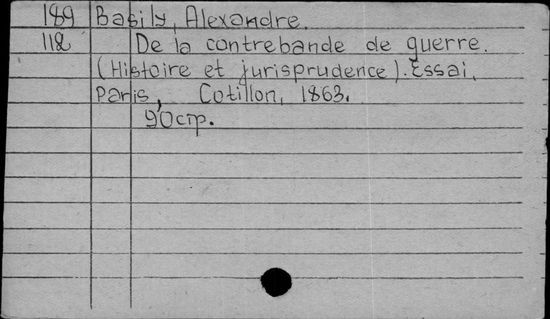 189 Basily, Alexandre.
112 De la contrebande de guerre.
(Histoire et jurisprudence). Essai.
Paris, Cotillon, 1863.
90 стр.